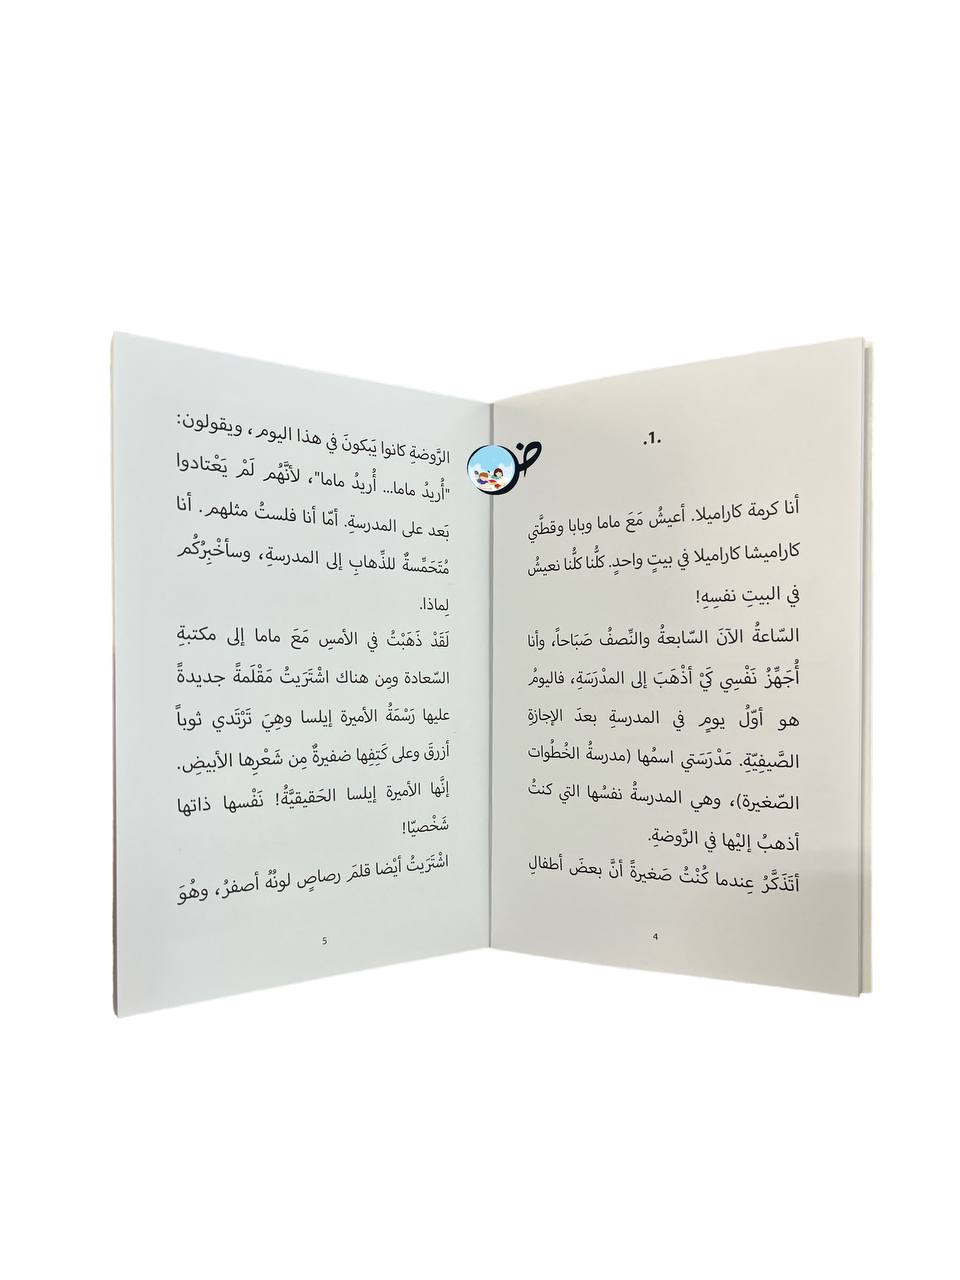 .1.
أنا كرمة كاراميلا. أعيشُ مَعَ ماما وبابا وقطَّتي
كاراميشا كاراميلا في بيتٍ واحدٍ. كلُّنا كلُّنا نعيشُ
في البيتِ نفسِهِ!
السّاعةُ الآنَ السّابعةُ والنِّصفُ صَبَاحاً، وأنا
أُجَهِّزُ نَفْسِي كَيْ أذْهَبَ إلى المدْرَسَةِ، فاليومُ
هو أوّلُ يومٍ في المدرسةِ بعدَ الإجازةِ
الصَّيفِيّةِ. مَدْرَسَتي اسمُها (مدرسةُ الخُطُوات
الصّغيرة)، وهي المدرسةُ نفسُها التي كنتُ
أذهبُ إليْها في الرَّوضةِ.
أتَذَكَّرُ عِندما كُنْتُ صَغيرةً أنَّ بعضَ أطفالِ
4
الرَّوضةِ كانوا يَبكونَ في هذا اليوم، ويقولون:
"أُريدُ ماما... أُريدُ ماما"، لأنَّهُم لَمْ يَعْتادوا
بَعد على المدرسةِ. أمّا أنا فلستُ مثلهم. أنا
مُتَحَمِّسةٌ للذِّهابِ إلى المدرسةِ، وسأخْبِرُكُم
لِماذا.
لَقَدْ ذَهَبْتُ في الأمسِ مَعَ ماما إلى مكتبةِ
السّعادة ومِن هناك اشْتَرَيتُ مَقْلَمةً جديدةً
عليها رَسْمَةُ الأميرة إيلسا وهِيَ تَرْتَدي ثوباً
أزرقَ وعلى كَتِفِها ضفيرةٌ مِن شَعْرِها الأبيضِ.
إنَّها الأميرة إيلسا الحَقيقيَّةُ! نَفْسها ذاتها
شَخْصيّا!
اشْتَرَيتُ أيْضا قلمَ رصاصٍ لونُهُ أصفرُ، وهُوَ
5
ض